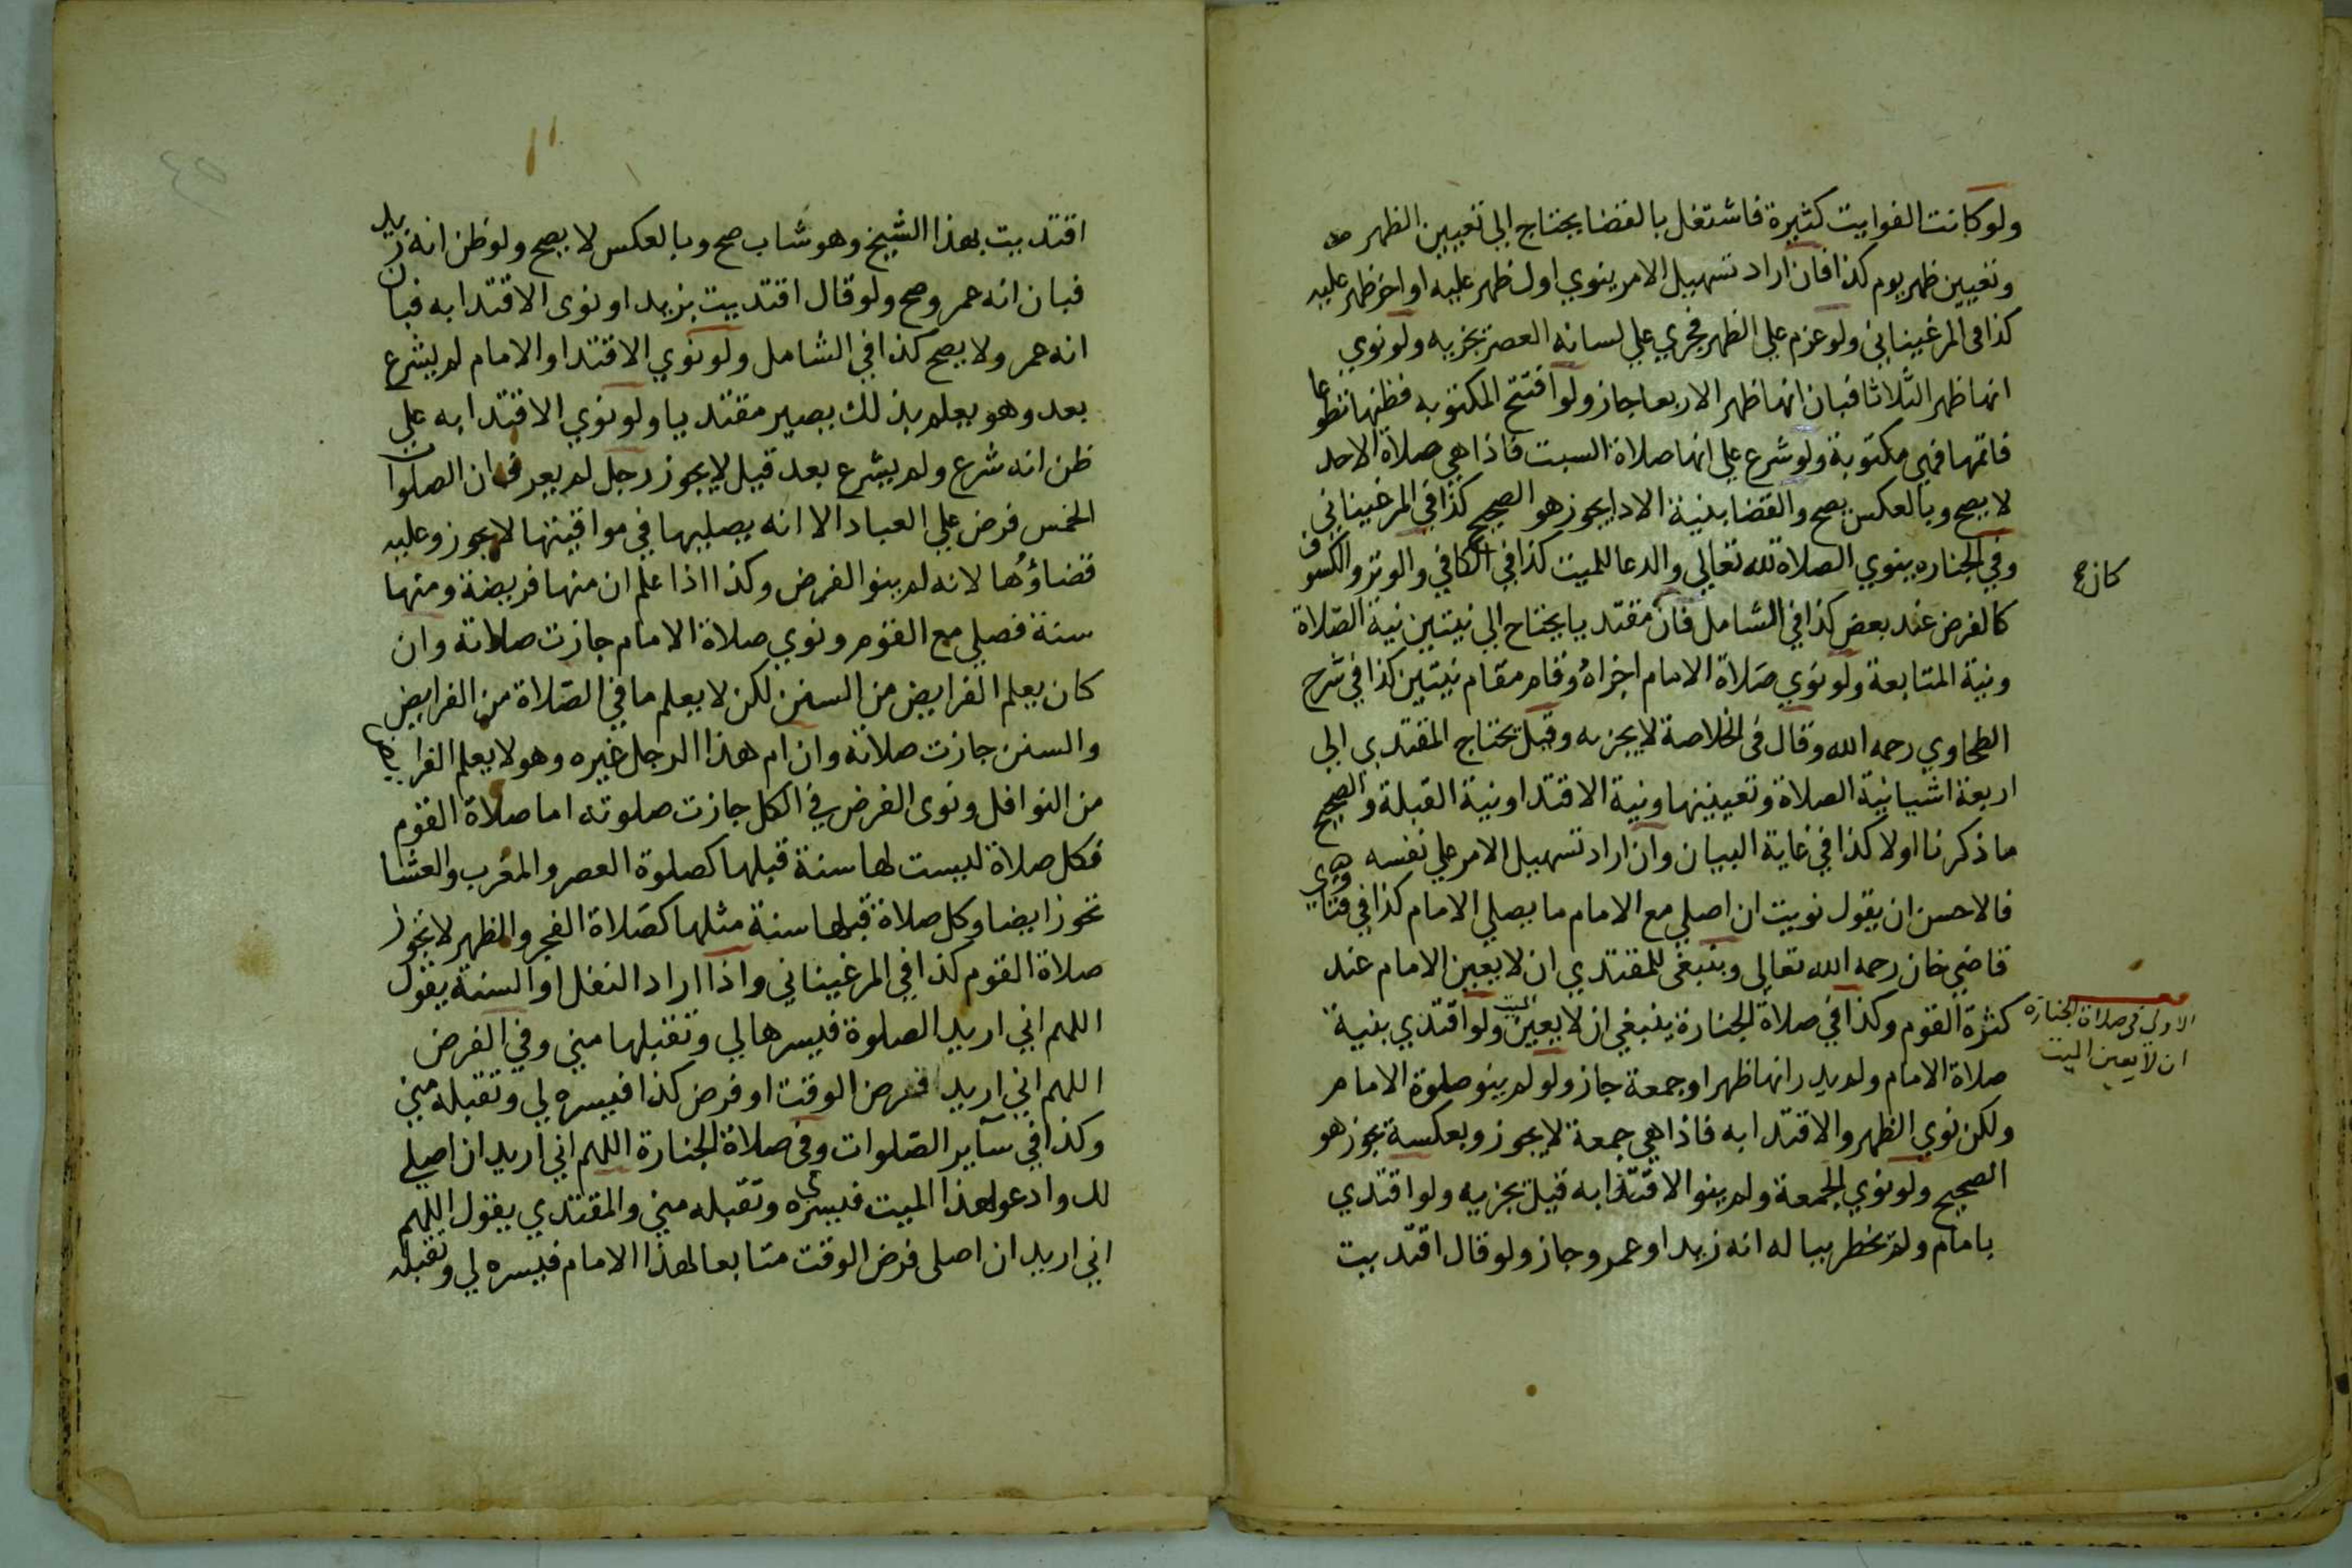 ولو كانت الفوايت كثيرة فاشتغل بالقضا يحتاج الي تعيين الظهر
وتعيين ظهر يوم كذا فان اراد تسهيل الامر ينوي اول ظهر عليه او اخر ظهر عليه
كذا فى المرغيناني ولو عزم على الظهر فجري علي لسانه العصر يجزيه ولو نوي
انها ظهر الثلاثا فبان انها ظهر الاربعا جاز ولو افتتح المكتوبه فظنها تطوعا
فاتمها فهي مكتوبة ولو شرع علي انها صلاة السبت فاذا هي صلاة الاحد
لا يصح وبالعكس يصح والقضا بنية الادا يجوز هو الصحيح كذا في المرغيناني
وفي الجنازه ينوي الصلاة لله تعالي والدعا للميت كذا في الكافي والوتر والكسوف
كان صح
كالفرض عند بعض كذا في الشامل فان مقتديا يحتاح الي نيتين نية الصّلاة
ونية المتابعة ولو نوي صلاة الامام اجزاه وقام مقام نيتين كذا في شرح
الطحاوي رحمه الله وقال فى الخلاصة لا يجزيه وقيل يحتاج المقتدي الي
اربعة اشيا نية الصلاة وتعيينها ونية الاقتدا ونية القبلة والصحيح
ما ذكرنا اولا كذا في غاية البيان وان اراد تسهيل الامر علي نفسه
فالاحسن ان يقول نويت ان اصلي مع الامام ما يصلي الامام كذا في فتاوي
قاضي خان رحمه الله تعالي وينبغى للمقتدي ان لا يعين الامام عند
كثرة القوم وكذا في صلاة الجنازة ينبغي ان لا يعين الميت ولو اقتدي بنية
الاولى في صلاة الجنازه
ان لا يعين الميت
صلاة الامام ولم يدر انها ظهر او جمعة جاز ولو لم ينو صلوة الامام
ولكن نوي الظهر والاقتدا به فاذا هي جمعة لا يجوز وبعكسة يجوز هو
الصحيح ولو نوي الجمعة ولم ينو الاقتدا به قيل يجزيه ولو اقتدي
بامام ولم يخطر بباله انه زيد او عمرو جاز ولو قال اقتديت
اقتديت بهذا الشيخ وهو شاب صح وبالعكس لا يصح ولو ظن انه زيد
فبان انه عمرو صح ولو قال اقتديت بزيد او نوى الاقتدا به فبان
انه عمر ولا يصح كذا في الشامل ولو نوي الاقتدا والامام لم يشرع
بعد وهو يعلم بذلك يصير مقتديا ولو نوي الاقتدا به علي
ظن انه شرع ولم يشرع بعد قيل لا يجوز رجل لم يعرف ان الصلوات
الخمس فرض علي العباد الا انه يصليها في مواقيتها لا يجوز وعليه
قضاؤها لانه لم ينو الفرض وكذا اذا علم ان منها فريضة ومنها
سنة فصلي مع القوم ونوي صلاة الامام جازت صلاته وان
كان يعلم الفرايض من السنن لكن لا يعلم ما في الصّلاة من الفرايض
والسنن جازت صلاته وان ام هذا الرجل غيره وهو لا يعلم الفرايض
من النوافل ونوى الفرض في الكل جازت صلوته اما صلاة القوم
فكل صلاة ليست لها سنة قبلها كصلوة العصر والمغرب والعشا
تجوز ايضا وكل صلاة قبلها سنة مثلها كصلاة الفجر والظهر لا تجوز
صلاة القوم كذا في المرغيناني واذا اراد النفل او السنة يقول
اللهم اني اريد الصلوة فيسرها لي وتقبلها مني وفي الفرض
اللهم اني اريد فرض الوقت او فرض كذا فيسره لي وتقبله مني
وكذا في ساير الصّلوات وفى صلاة الجنازة اللهم اني اريد ان اصلي
لك وادعو لهذا الميت فيسره لي وتقبله مني والمقتدي يقول اللهم
اني اريد ان اصلى فرض الوقت متابعا لهذا الامام فيسره لي وتقبله